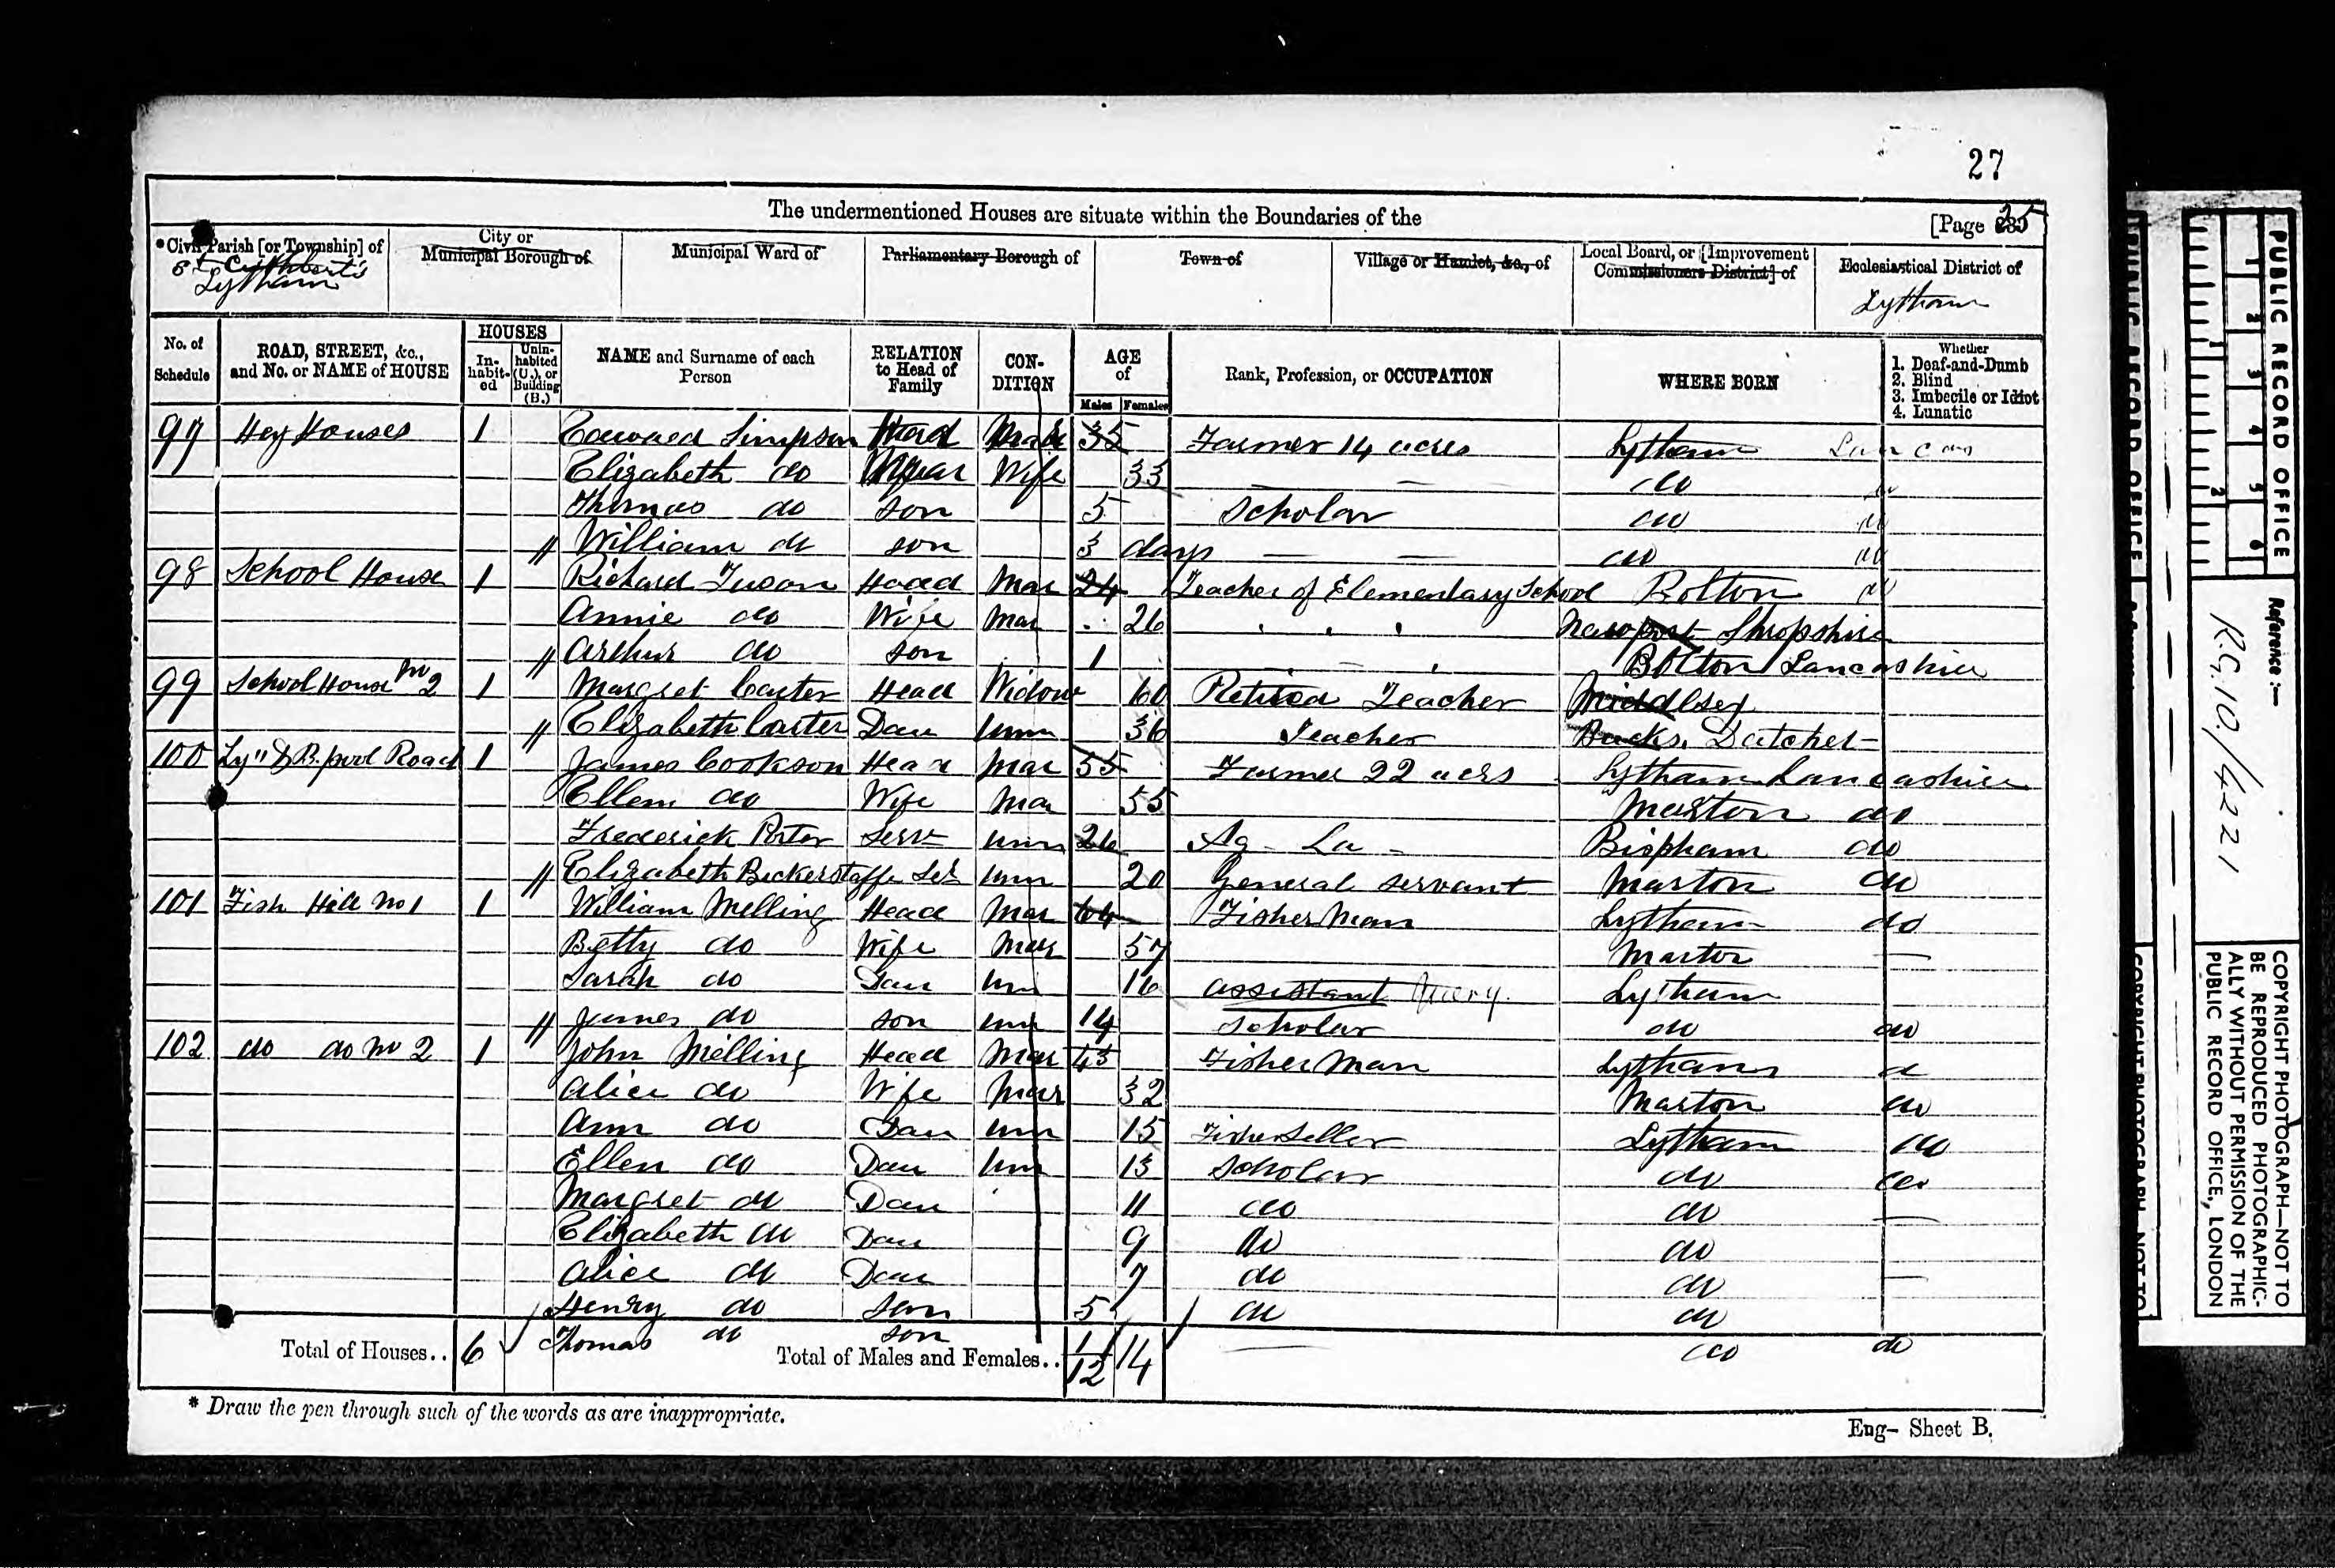 27
The undermentioned Houses are situate within the Boundaries of the [Page 25
*Civil Parish [or Township] of
St Cuthbert's
Lytham
City or Municipal Borough of
Municipal Ward of
Parliamentary Borough of
Town of
Village or Hamlet, &c., of
Local Board, or [Improvement Commissioners District] of
Ecclesiastical District of
Lytham
No. of Schedule
ROAD, STREET, &c., and No. or NAME of HOUSE
HOUSES
In-habit-ed
Unin-habited (U.), or Building (B.)
NAME and Surname of each Person
RELATION to Head of Family
CON-DITION
AGE of
Males Females
Rank, Profession, or OCCUPATION
WHERE BORN
Whether
1. Deaf-and-Dumb
2. Blind
3. Imbecile or Idiot
4. Lunatic
97 Hey Houses 1 Edward Simpson Head Mar 35 Farmer 14 acres Lytham Lancas
Elizabeth do Wife 33 — — do do
Thomas do son 5 Scholar do do
William do son 3 days — — do do
98 School House 1 Richard Tuson Head Mar 24 Teacher of Elementary School Bolton do
Annie do Wife Mar 26 Newport Shropshire
Arthur do son 1 Bolton Lancashire
99 School House No 2 1 Margret Carter Head Widow 60 Retired Teacher Middlsex
Elizabeth Carter Dau unm 36 Teacher Bucks. Datchet
100 Ly" & B. pool Road 1 James Cookson Head Mar 55 Farmer 22 acrs Lytham Lancashire
Ellen do Wife Mar 55 Marton do
Frederick Porter Serv unm 26 Ag - La - Bispham do
Elizabeth Bickerstaffe Ser unm 20 General servant Marton do
101 Fish Hill No 1 1 William Melling Head Mar 64 Fisher Man Lytham do
Betty do Wife Mar 57 Marton —
Sarah do Dau unm 16 assistant Query. Lytham
James do son unm 14 Scholar do do
102 do do No 2 1 John Melling Head Mar 43 Fisher Man Lytham do
Alice do Wife Mar 32 Marton do
Ann do Dau unm 15 Fisher Seller Lytham do
Ellen do Dau unm 13 Scholar do do
Margret do Dau 11 do do —
Elizabeth do Dau 9 do do
Alice do Dau 7 do do —
Henry do Son 5 do do
Thomas do son 1 — do do
Total of Houses.. 6 Total of Males and Females.. 12 14
* Draw the pen through such of the words as are inappropriate.
Eng- Sheet B.
PUBLIC RECORD OFFICE
1 2 3 4 5 6
1 2
Reference :—
R.G. 10/4221
COPYRIGHT PHOTOGRAPH—NOT TO BE REPRODUCED PHOTOGRAPHIC-ALLY WITHOUT PERMISSION OF THE PUBLIC RECORD OFFICE, LONDON